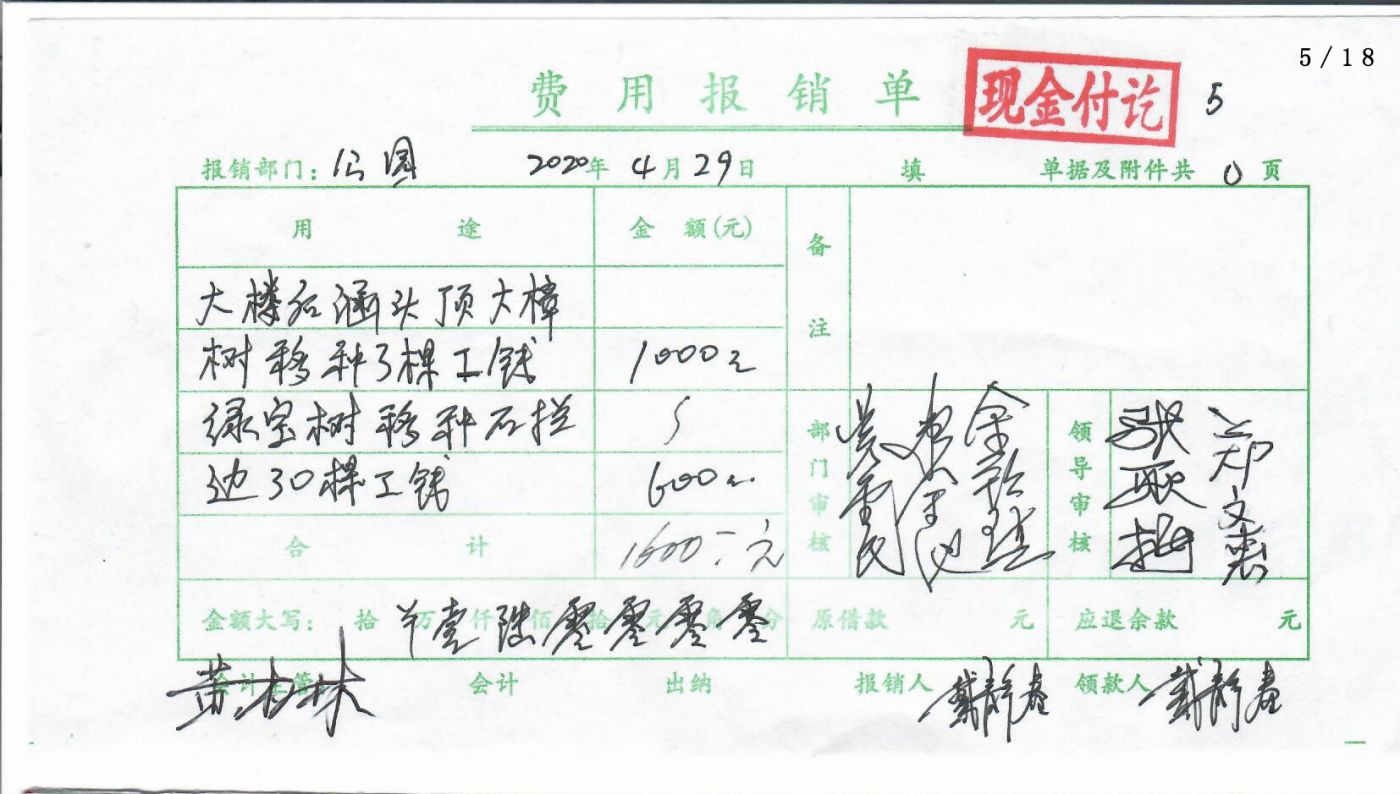 5/18
费用报销单 现金付讫 5
报销部门：公园 2020年4月29日 填 单据及附件共 0 页
用途 金额(元) 备注
大楼后涵头顶大樟
树移种3棵工钱 1000元
绿宝树移种石拦
边30棵工钱 600元
合计 1600元
部门审核 领导审核 郑文惠
金额大写：拾 万壹仟陆佰零拾零元零角零分 原借款 元 应退余款 元
会计主管 会计 出纳 报销人 戴静春 领款人 戴静春